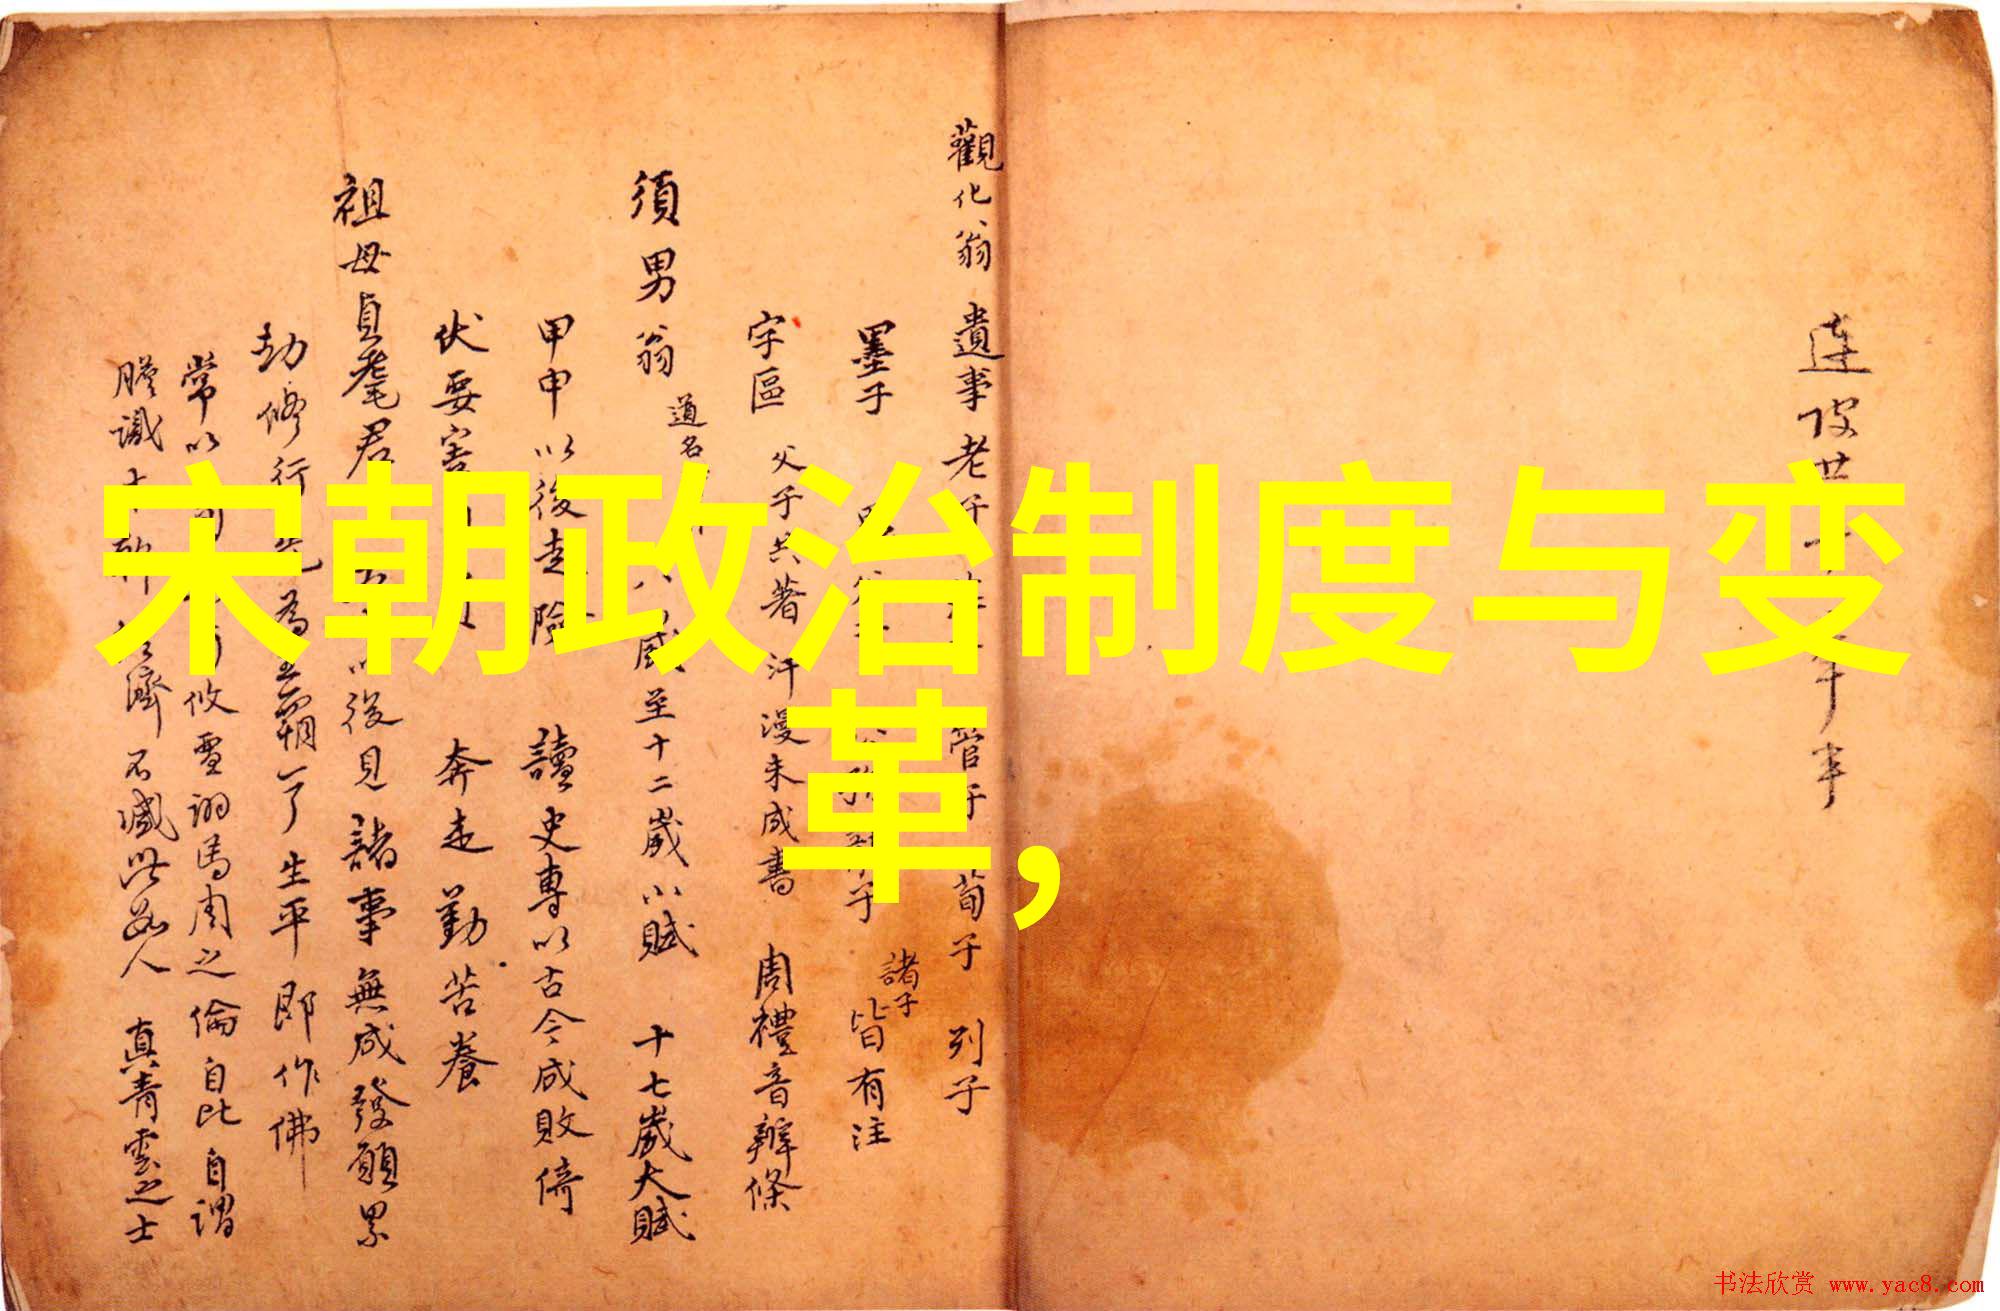 宋朝政治制度与变
革,
连伎世
觀化翁 遺事 老子 管子 荀子 列子
墨子 諸子皆有注
字區 父子共著 汗漫未成書 周禮音辦條
須男翁 道名 八歲至十二歲小賦 十七歲大賦
甲申以後走險 讀史專以古今成敗倚
伏要害 奔走勤苦養
祖母貞耄君 以後見諸事無成發願累
劫修行 為 霸一了生平即作佛
常以 攸 馬周之倫自比自謂
膽識 濟不减此 人 真青雲之士
书法欣赏 www.yac8.com